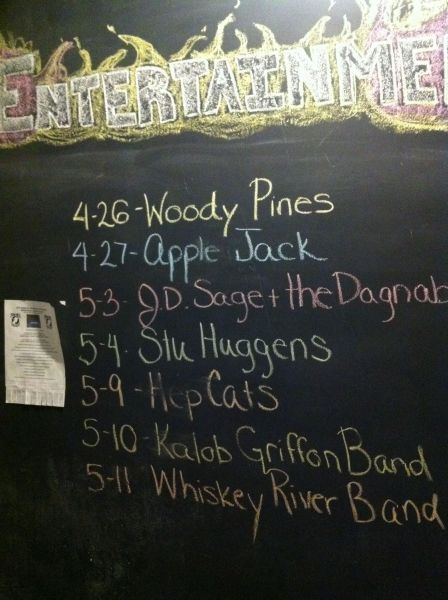 ENTERTAINME
4-26-Woody Pines
4-27-Apple Jack
5-3-J.D. Sage + the Dagnab
5-4-Stu Huggens
5-9-Hep Cats
5-10-Kalob Griffon Band
5-11 Whiskey River Band